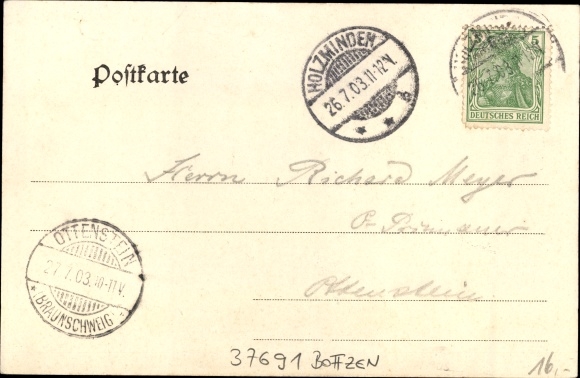 Postkarte
HOLZMINDEN
26.7.03.11-12V.
5
DEUTSCHES REICH
Herrn Richard Meyer
Ottenstein
OTTENSTEIN
27.7.03.10-11V.
BRAUNSCHWEIG
37691 BOFFZEN
16,-